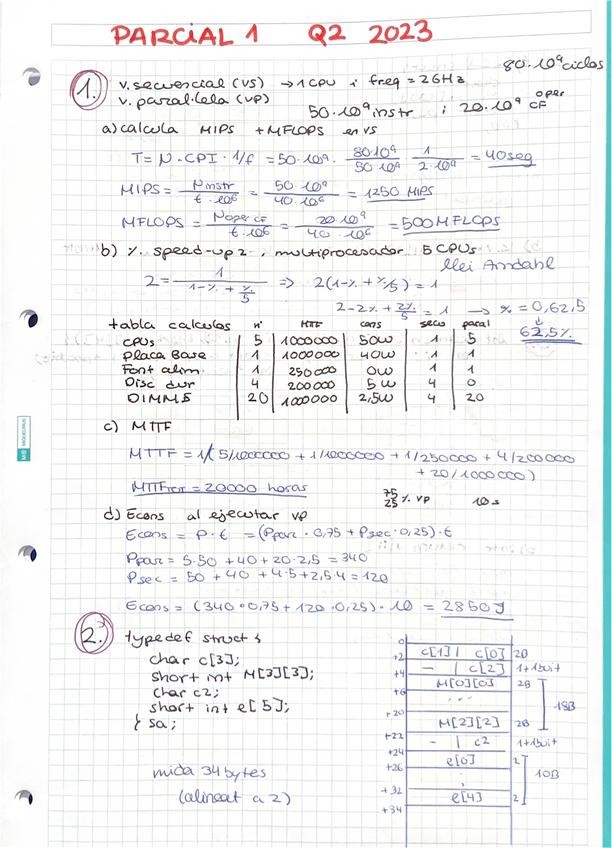 PARCIAL 1 Q2 2023
80·10⁹ ciclos
1. v. secuencial (VS) → 1 CPU i freq = 2GHz
v. paral·lela (VP) 50·10⁹ instr i 20·10⁹ oper CF
a) calcula MIPS + MFLOPS en VS
T = N · CPI · 1/f = 50·10⁹ · 80·10⁹/50·10⁹ · 1/2·10⁹ = 40seg
MIPS = Ninstr/t·10⁶ = 50·10⁹/40·10⁶ = 1250 MIPS
MFLOPS = Noper CF/t·10⁶ = 20·10⁹/40·10⁶ = 500 MFLOPS
b) %. speed-up 2, multiprocesador 5 CPUs
llei Amdahl
2 = 1/(1-% + %/5) ⇒ 2(1-% + %/5) = 1
2-2% + 2%/5 = 1 → % = 0,62,5
62,5%
tabla calculos nº MTF cons secu paral
CPUs 5 1000000 50W 1 5
Placa Base 1 1000000 40W 1 1
Font alim 1 250000 0W 1 1
Disc dur 4 200000 5W 4 0
DIMMS 20 1000000 2,5W 4 20
c) MTTF
MTTF = 1/(5/1000000 + 1/1000000 + 1/250000 + 4/200000
+ 20/1000000)
MTTFTOT = 20000 horas
75 25 % VP 10s
d) Econs al ejecutar VP
Econs = P·t = (Ppar · 0,75 + Psec · 0,25) · t
Ppar = 5·50 + 40 + 20·2,5 = 340
Psec = 50 + 40 + 4·5 + 2,5·4 = 120
Econs = (340·0,75 + 120·0,25) · 10 = 2850J
2. typedef struct {
char c[3];
short int M[3][3];
char c2;
short int e[5];
} sa;
mida 34 bytes
(alineat a 2)
0
c[1] | c[0] 2B
+2
- | c[2] 1+1buit
+4
M[0][0] 2B
+6
... 18B
+20
M[2][2] 2B
+22
- | c2 1+1buit
+24
e[0] 2
+26
10B
+32
e[4] 2
+34
MIQUELRIUS